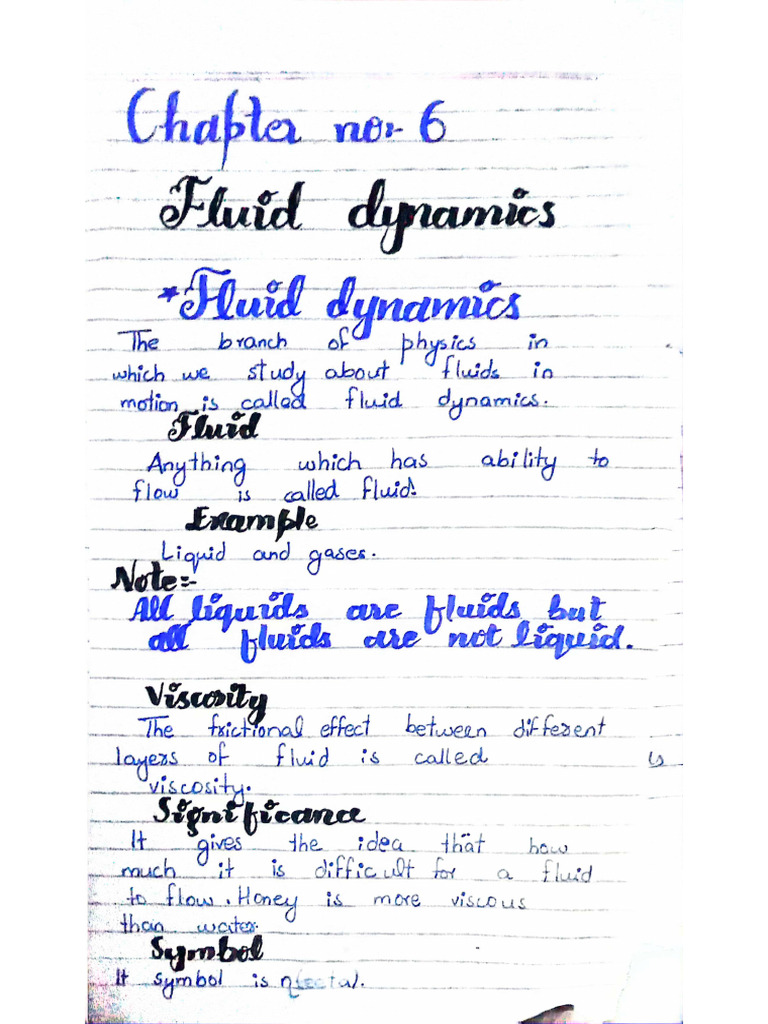 Chapter no:- 6
Fluid dynamics
*Fluid dynamics
The branch of physics in
which we study about fluids in
motion is called fluid dynamics.
Fluid
Anything which has ability to
flow is called fluid.
Example
Liquid and gases.
Note:-
All liquids are fluids but
all fluids are not liquid.
Viscosity
The frictional effect between different
layers of fluid is called
viscosity.
Significance
It gives the idea that how
much it is difficult for a fluid
to flow. Honey is more viscous
than water.
Symbol
It symbol is η(eeta).